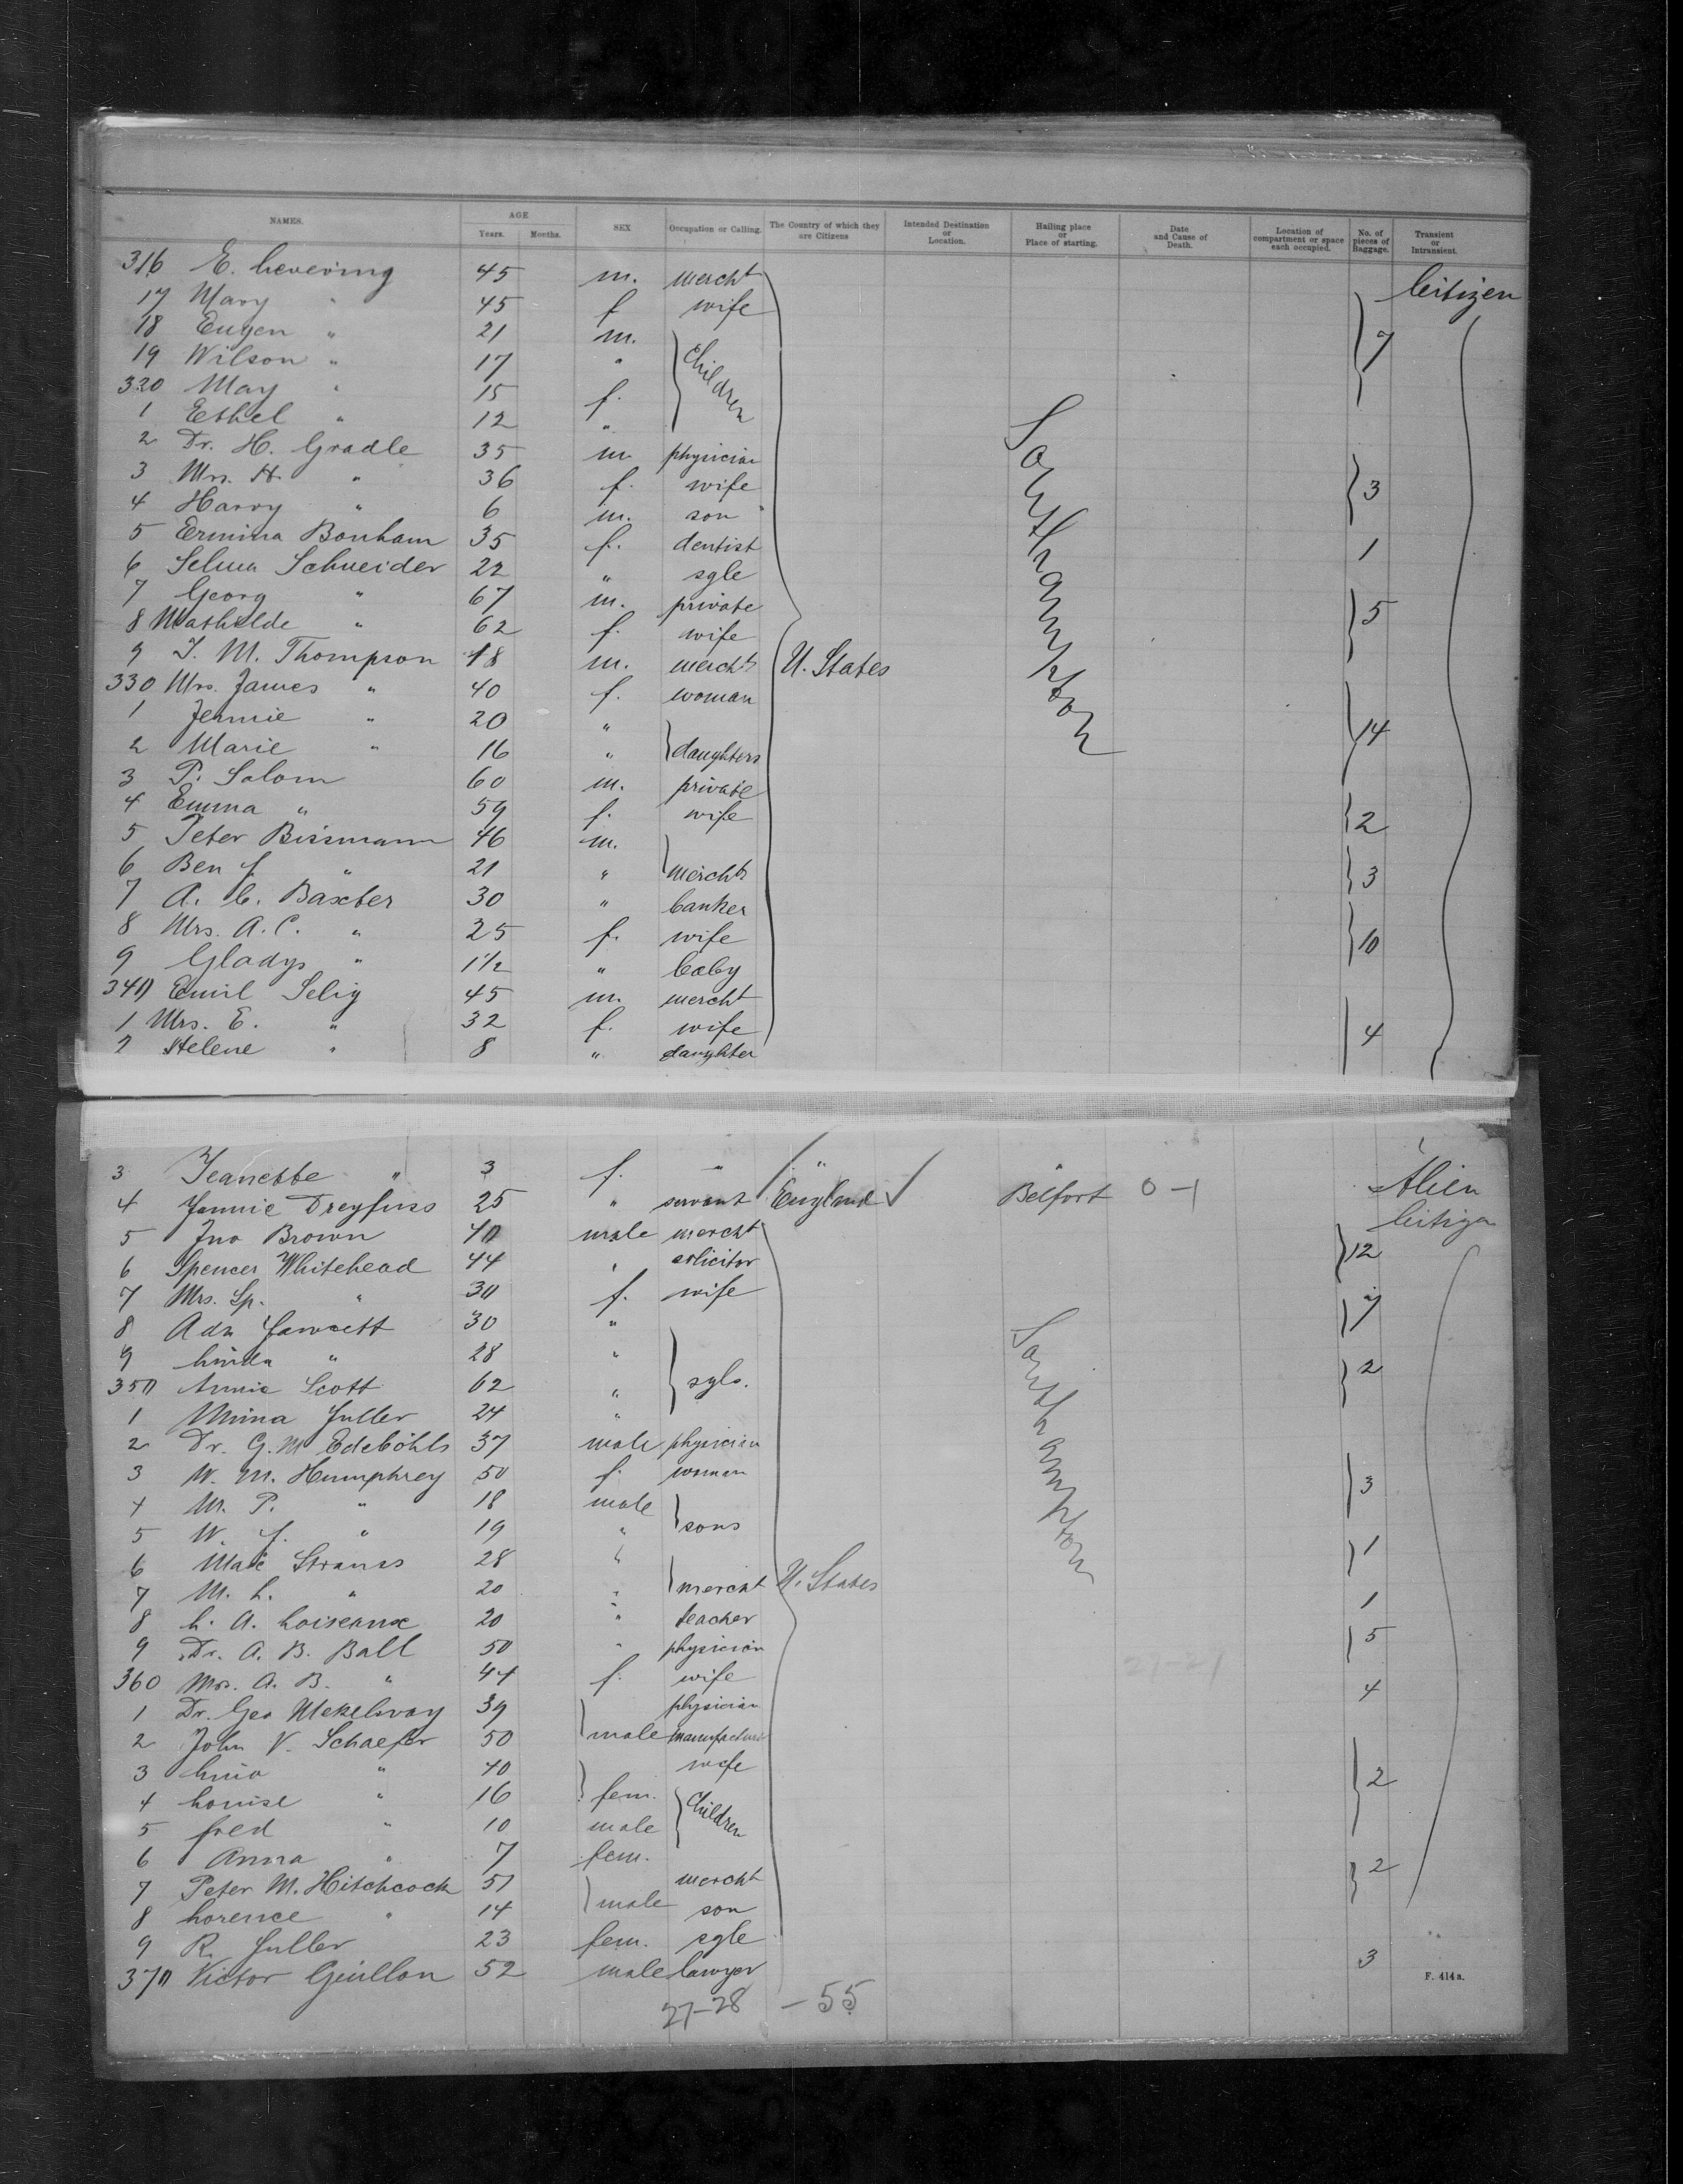 NAMES. AGE Years. Months. SEX Occupation or Calling. The Country of which they are Citizens Intended Destination or Location. Hailing place or Place of starting. Date and Cause of Death. Location of compartment or space each occupied. No. of pieces of Baggage. Transient or Intransient.
316 E. Levering 45 m. mercht Citizen
17 Mary " 45 f wife
18 Eugen " 21 m. 7
19 Wilson " 17 " Children
320 May " 15 f.
1 Ethel " 12 "
2 Dr. H. Gradle 35 m physician Southampton
3 Mrs. H. " 36 f. wife 3
4 Harry " 6 m. son
5 Ermina Bonham 35 f. dentist 1
6 Selma Schneider 22 " sgle
7 Georg " 67 m. private 5
8 Mathilde " 62 f. wife
9 J. M. Thompson 18 m. mercht U. States
330 Mrs. James " 40 f. woman
1 Jennie " 20 " 14
2 Marie " 16 " daughters
3 P. Salom 60 m. private
4 Emma " 59 f. wife 2
5 Peter Bissmann 46 m.
6 Ben J. " 21 " merchts 3
7 A. C. Baxter 30 " banker
8 Mrs. A. C. " 25 f. wife 10
9 Gladys " 1 1/2 " baby
340 Emil Selig 45 m. mercht
1 Mrs. E. " 32 f. wife 4
2 Helene " 8 " daughter
3 Jeanette " 3 f. " "
4 Fannie Dreyfuss 25 " servant England Belfort 0-1 Alien
5 Jno Brown 40 male mercht Citizen
6 Spencer Whitehead 44 " solicitor 12
7 Mrs. Sp. " 30 f. wife
8 Ada Fawcett 30 " 7
9 Linda " 28 " Southampton
350 Annie Scott 62 " sgls. 2
1 Minna Fuller 24 "
2 Dr. G. M Edebohls 37 male physician
3 W. M. Humphrey 50 f. woman 3
4 M. P. " 18 male
5 W. J. " 19 " sons
6 Max Strauss 28 " 1
7 M. L. " 20 " mercht U. States
8 L. A. Loiseaux 20 " teacher 1
9 Dr. A. B. Ball 50 " physician 5
360 Mrs. A. B. " 44 f. wife 21-21
1 Dr. Geo McKelway 39 physician 4
2 John V. Schaefer 50 male manufacturer
3 Lina " 40 wife
4 Louise " 16 fem. Children 2
5 Fred " 10 male
6 Anna " 7 fem.
7 Peter M. Hitchcock 51 mercht 2
8 Lorence " 14 male son
9 R. Fuller 23 fem. sgle
370 Victor Guillon 52 male lawyer 3
F. 414a.
27-28 - 55